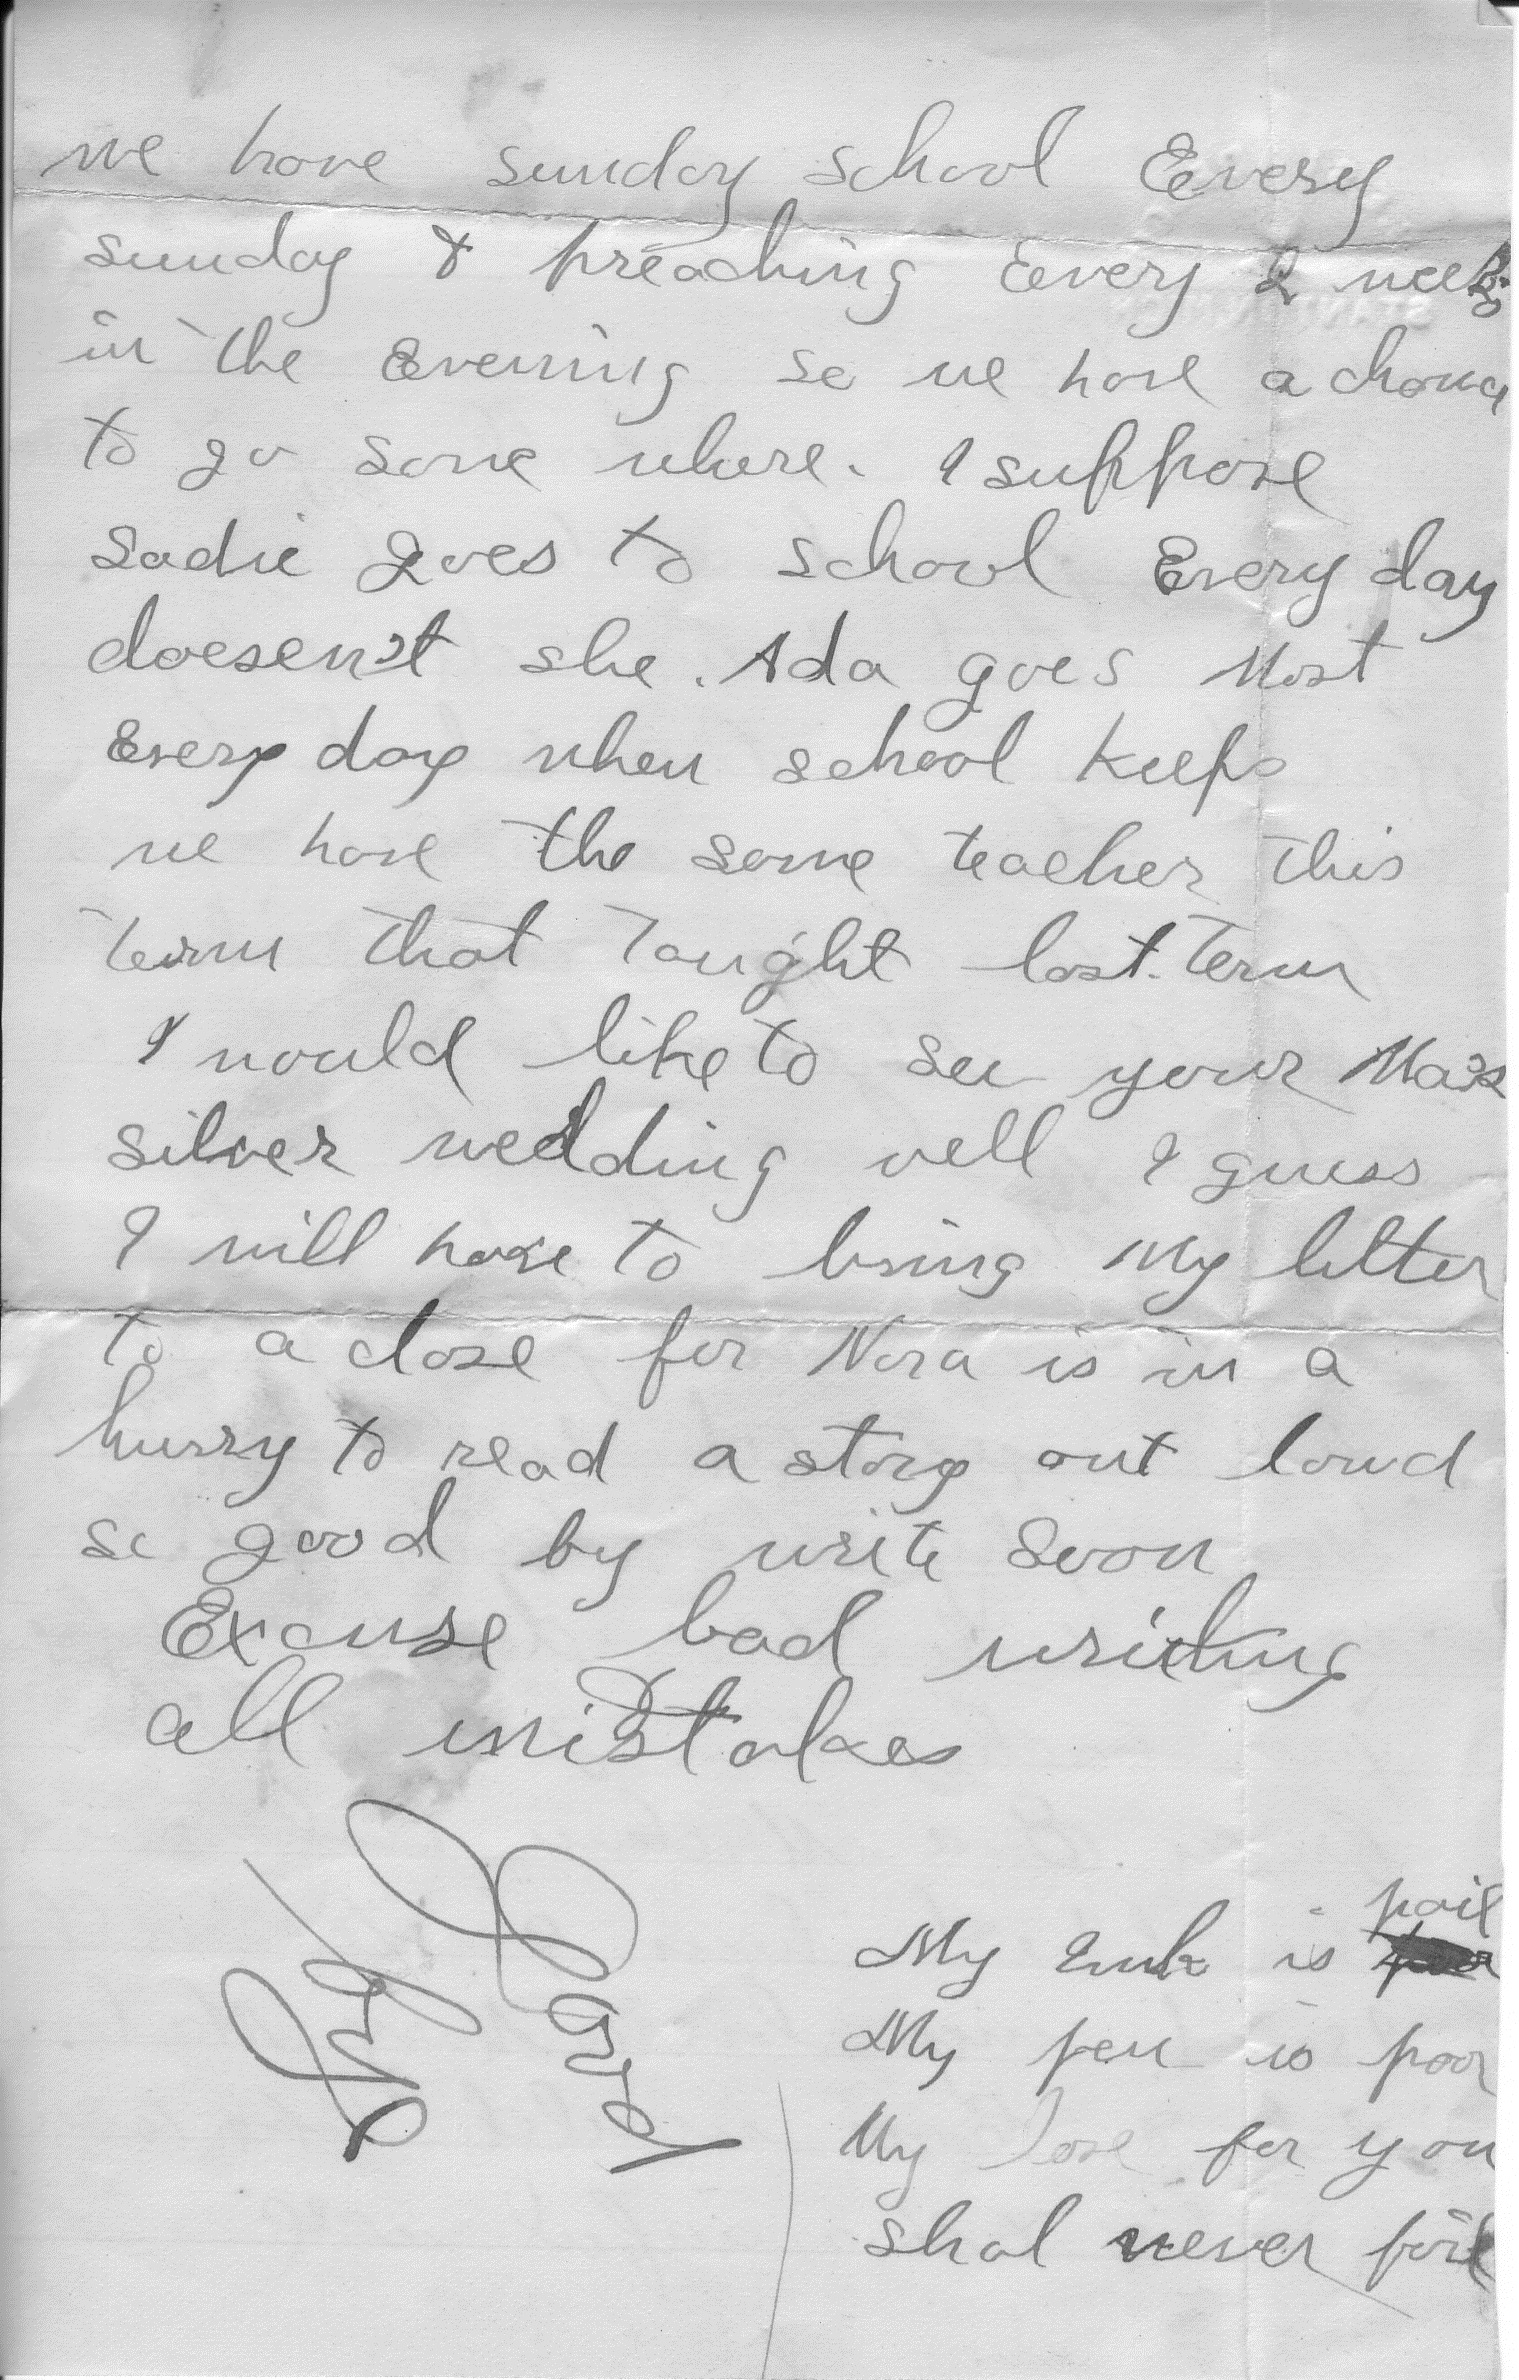 we have sunday school Every
sunday & preaching Every 2 weeks
in the Evening so we have a chance
to go some where. I suppose
Sadie goes to school Every day
doesen't she. Ada goes Most
Every day when school keeps
we have the same teacher this
term that Taught last. Term
I would like to see your Ma's
silver wedding well I guess
I will have to bring My letter
to a close for Nora is in a
hurry to read a story out loud
so good by write soon
Excuse bad writing
all mistakes
My Ink is pail
My pen is poor
My love for you
shal never fail